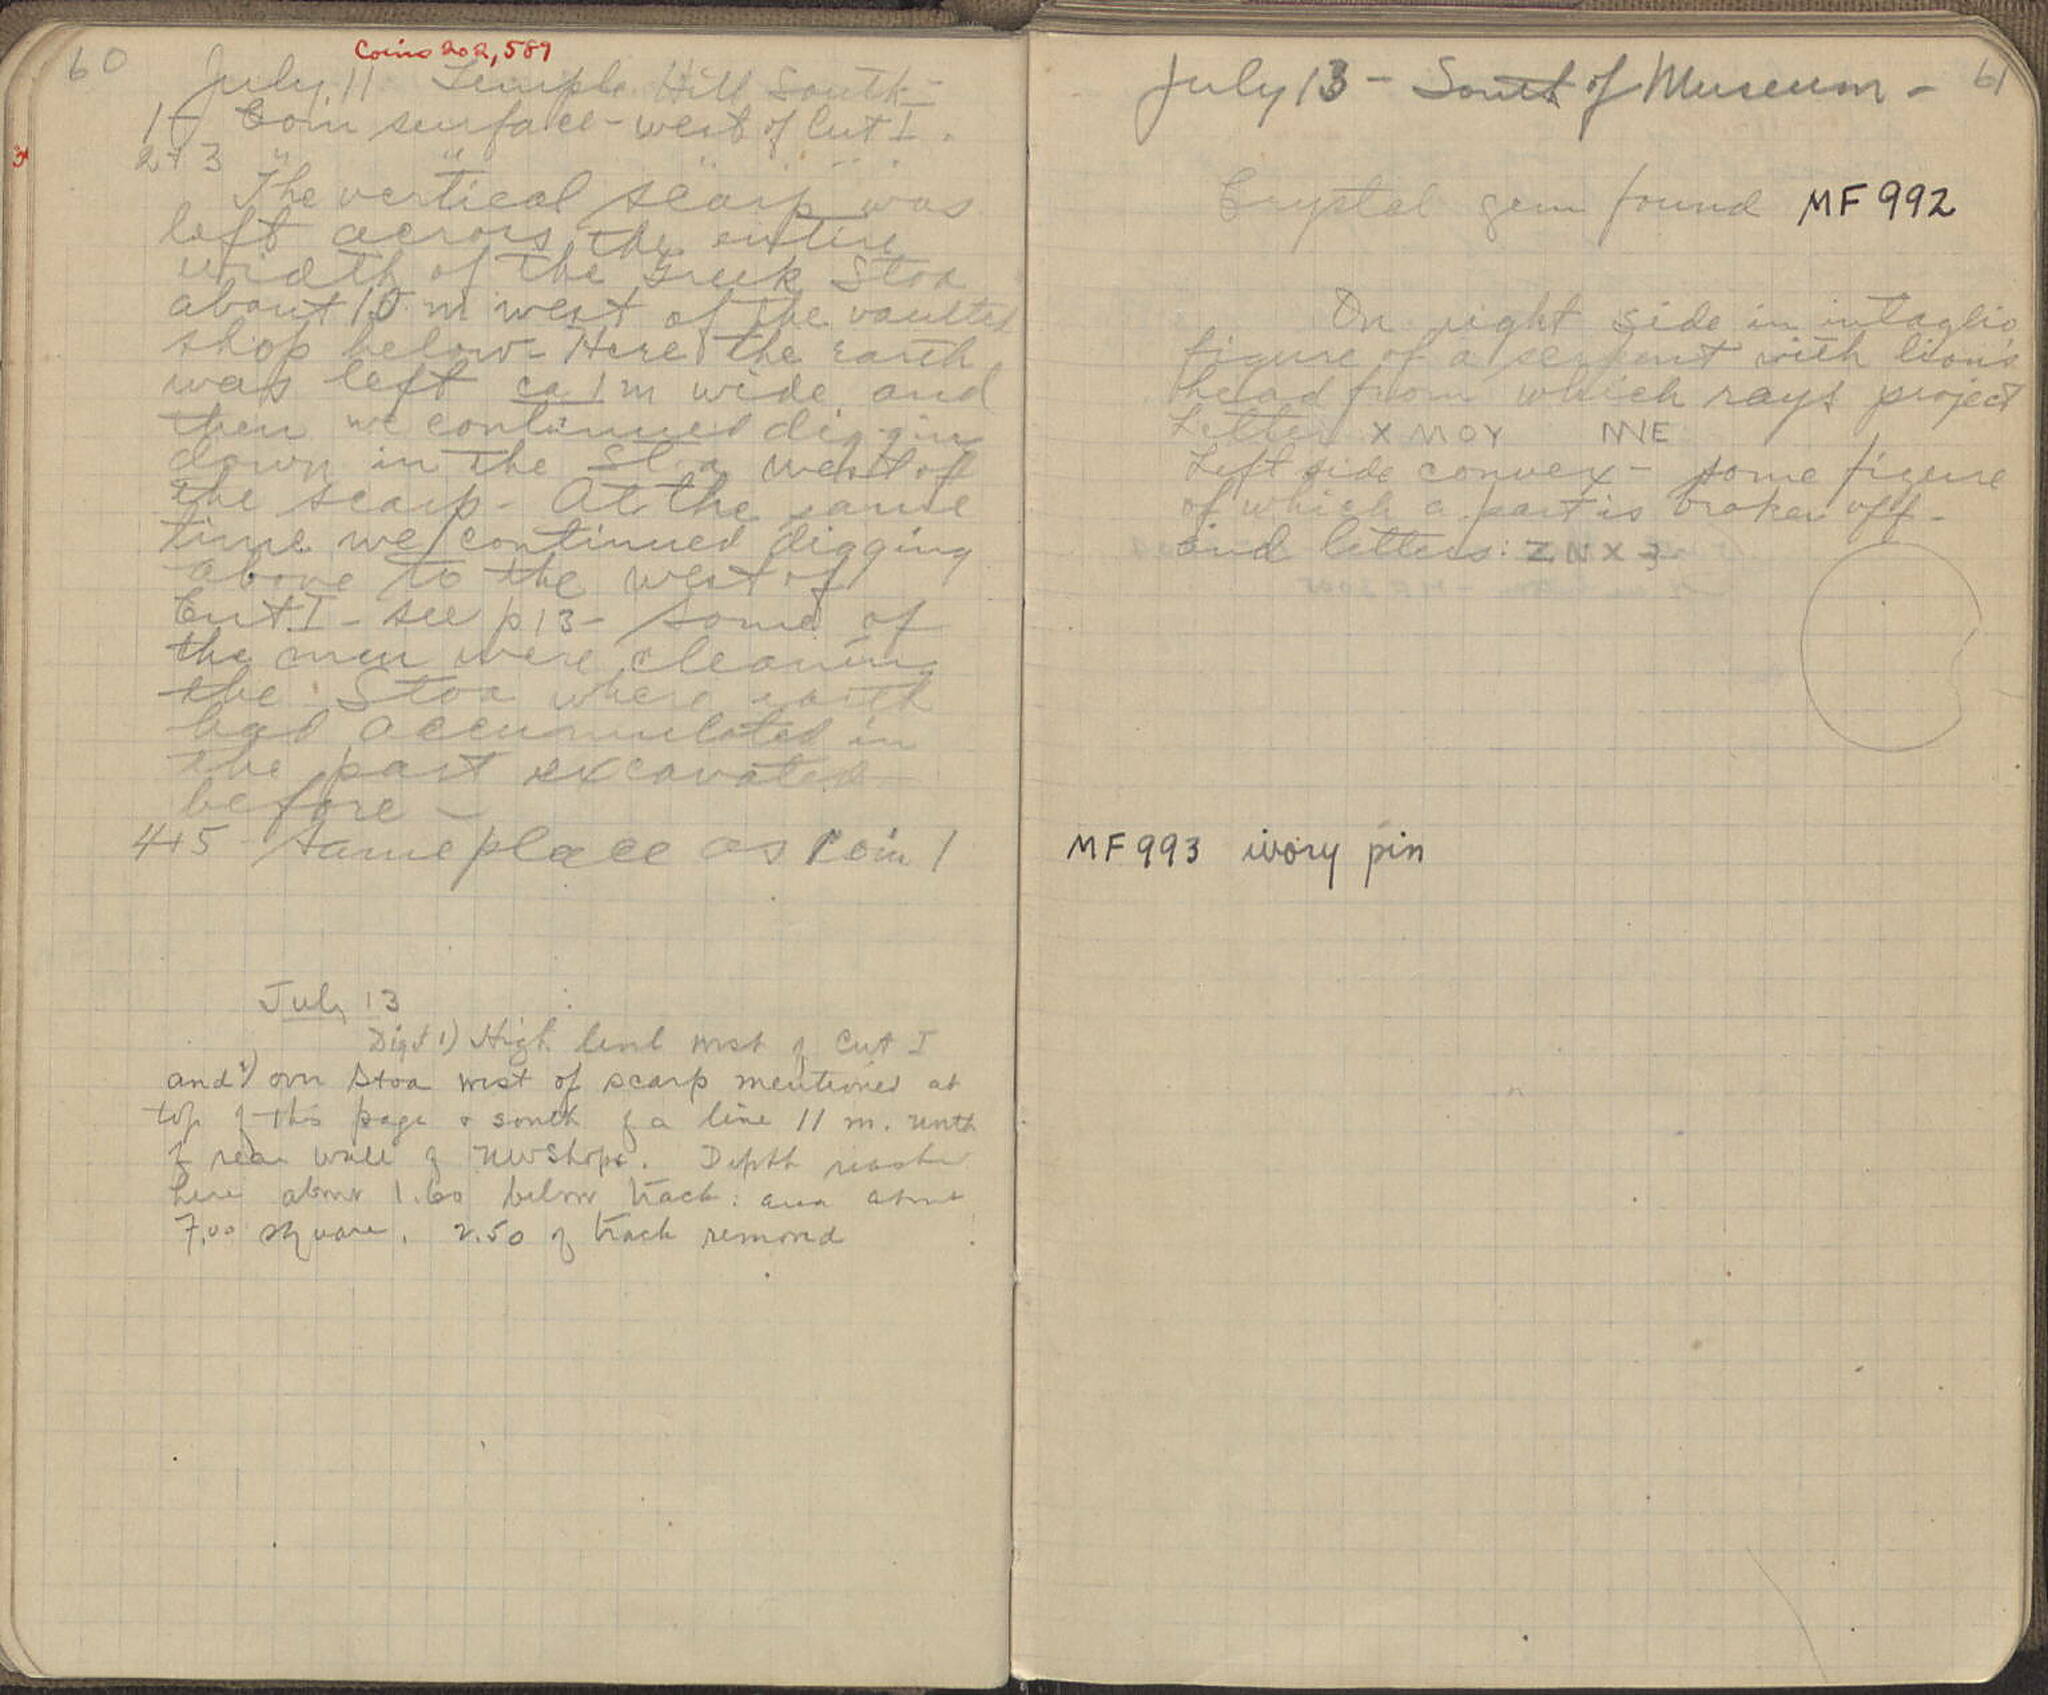 60
Coins 202, 589
July 11 Temple Hill South -
1 - Coin surface - west of Cut I.
2 + 3 " " " " " "
The vertical scarp was
left across the entire
width of the Greek Stoa
about 10 m west of the vaulted
shop below - Here the earth
was left ca 1 m wide and
then we continued digging
down in the Stoa west of
the scarp - At the same
time we continued digging
above to the west of
Cut I - see p 13 - Some of
the men were cleaning
the Stoa where earth
had accumulated in
the part excavated
before -
4 + 5 Same place as Coin 1
July 13
Dig't 1) High level west of Cut I
and 2) over Stoa west of scarp mentioned at
top of this page & south of a line 11 m. north
of rear wall of NW Shops. Depth reached
here about 1.60 below track: area about
7.00 square. 2.50 of track removed
61
July 13 - South of Museum -
Crystal gem found MF 992
On right side in intaglio
figure of a serpent with lion's
head from which rays project
Letter X M O Y NNE
Left side convex - some figure
of which a part is broken off -
and letters: Z N X 3
MF 993 ivory pin